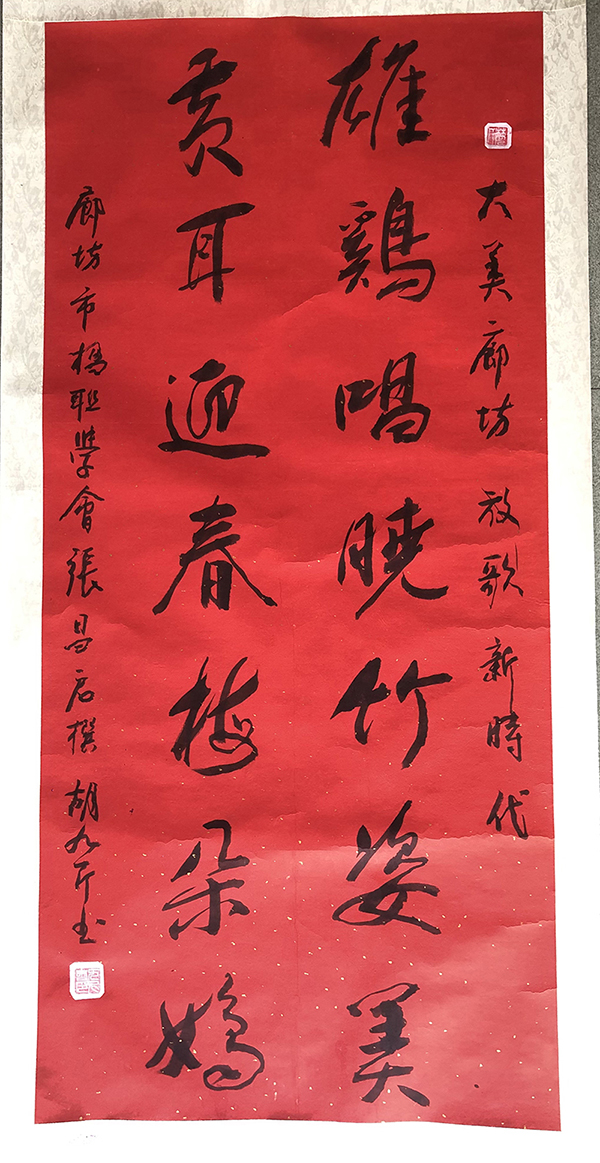 大美廊坊 放歌新時代
雄鷄唱曉竹姿美
黄耳迎春梅朵嬌
廊坊市楹联學會張昌君撰 胡九斤书